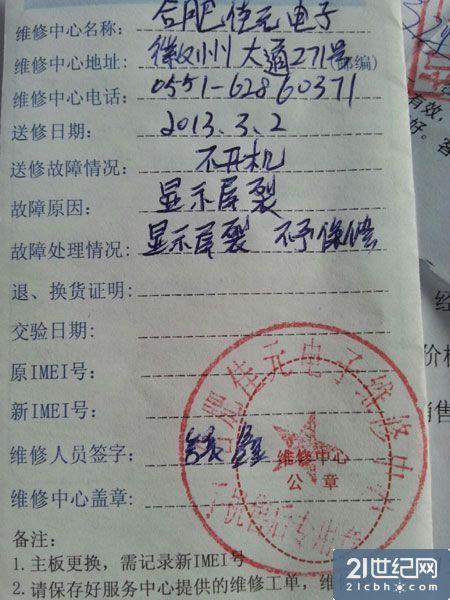 维修中心名称：合肥佳元电子
维修中心地址：徽州大道271号(邮编)
维修中心电话：0551-62860371
送修日期：2013.3.2
送修故障情况：不开机
故障原因：显示屏裂
故障处理情况：显示屏裂 不予保修
退、换货证明：
交验日期：
原IMEI号：
新IMEI号：
维修人员签字：
维修中心盖章：
维修中心
公章
合肥佳元电子维修中心
备注：
1.主板更换，需记录新IMEI号
2.请保存好服务中心提供的维修工单，维
有效，
好。客
价格
销售
21世纪网
21cbh.com